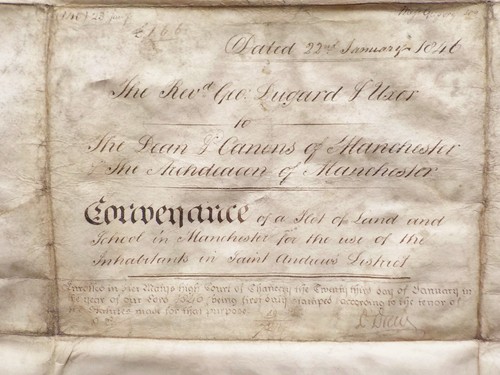 £166
Dated 22nd January 1846
The Revd. Geo: Lugard & Uxor
to
The Dean & Canons of Manchester
& The Archdeacon of Manchester
Conveyance of a Plot of Land and
School in Manchester for the use of the
Inhabitants in Saint Andrews District
Enrolled in Her Majtys High Court of Chancery the Twenty third day of January in
the year of our Lord being first duly stamped according to the tenor of
the Statutes made for that purpose.